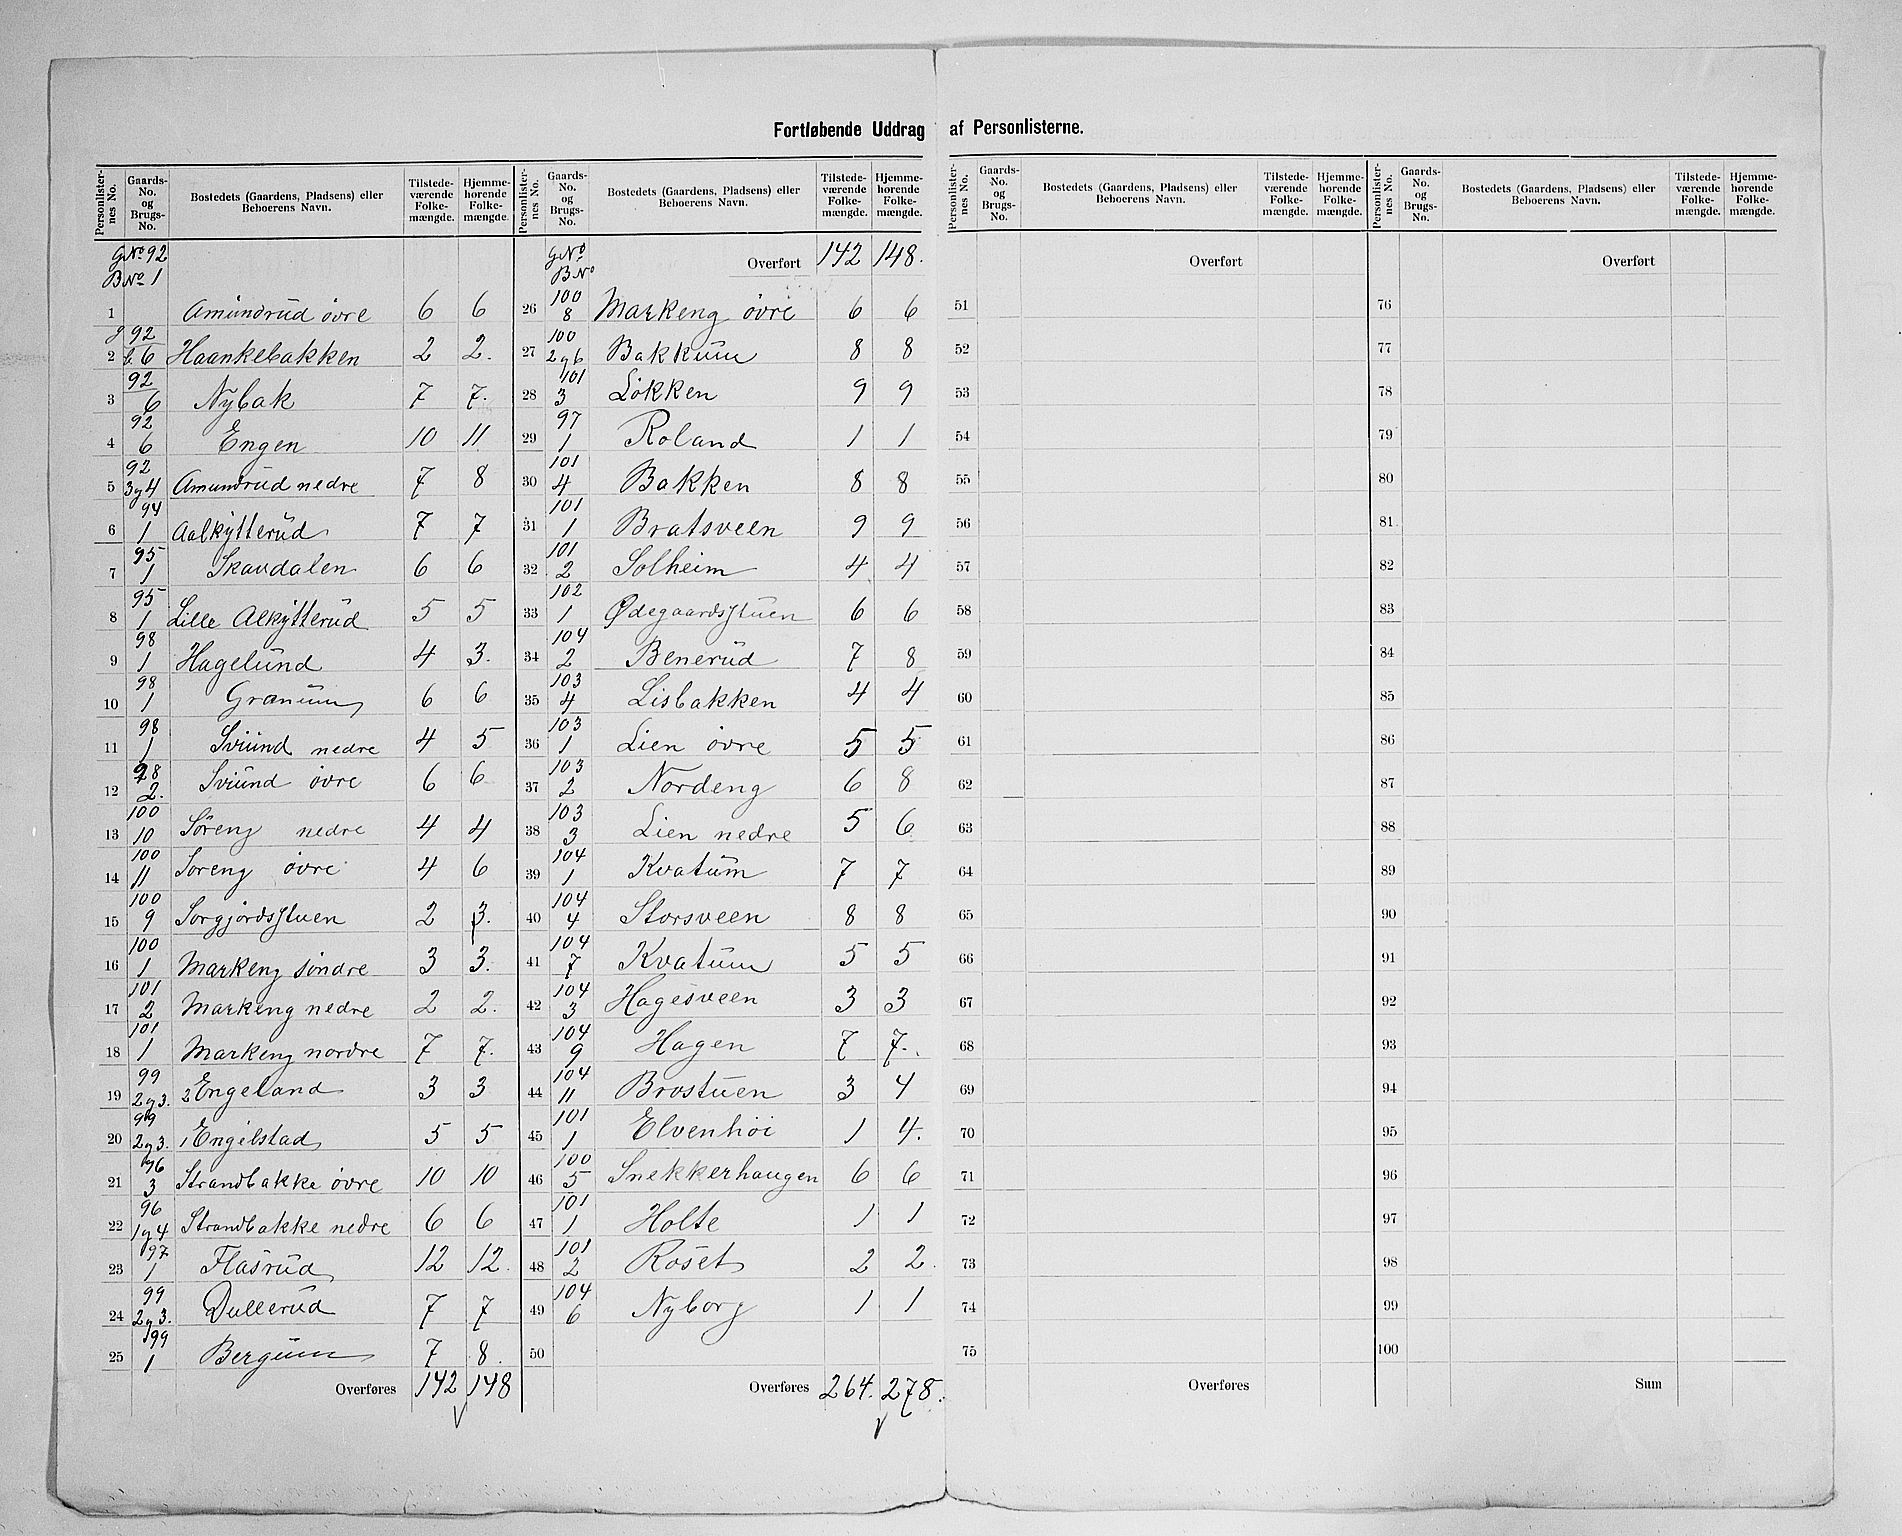 Fortløbende Uddrag af Personlisterne.
Personlister-nes No. | Gaards-No. og Brugs-No. | Bostedets (Gaardens, Pladsens) eller Beboerens Navn. | Tilstede-værende Folke-mængde. | Hjemme-hørende Folke-mængde.
GNo 92 BNo 1
1 Amundrud övre 6 6
2 g 92 b 6 Haankebakken 2 2.
3 92 6 Nybak 7 7.
4 92 6 Engen 10 11
5 92 3 og 4 Amundrud nedre 7 8
6 94 1 Aalkytterud 7 7
7 95 1 Skavdalen 6 6
8 95 1 Lille Alkytterud 5 5
9 98 1 Hagelund 4 3.
10 98 1 Granum 6 6
11 98 1 Sviund nedre 4 5
12 98 2. Sviund övre 6 6
13 100 10 Söreng nedre 4 4
14 100 11 Söreng övre 4 6
15 100 9 Sorgjordsstuen 2 3.
16 100 1 Markeng söndre 3 3.
17 101 2 Markeng nedre 2 2.
18 101 1 Markeng nordre 7 7.
19 99 2 og 3. 2 Engeland 3 3
20 99 2 og 3. 1 Engelstad 5 5
21 96 3 Strandbakke övre 10 10
22 96 1 og 4 Strandbakke nedre 6 6
23 97 1 Flasrud 12 12.
24 99 2 og 3. Dullerud 7 7
25 99 1 Bergum 7 8.
Overføres 142 148
Personlister-nes No. | Gaards-No. og Brugs-No. | Bostedets (Gaardens, Pladsens) eller Beboerens Navn. | Tilstede-værende Folke-mængde. | Hjemme-hørende Folke-mængde.
GNo BNo Overført 142 148.
26 100 8 Markeng övre 6 6
27 100 2 og 6 Bakkum 8 8
28 101 3 Lökken 9 9
29 97 1 Roland 1 1
30 101 4 Bakken 8 8
31 101 1 Bratsveen 9 9
32 101 2 Solheim 4 4
33 102 1 Ødegaardsstuen 6 6
34 104 2 Benerud 7 8
35 103 4 Lisbakken 4 4
36 103 1 Lien övre 5 5
37 103 2 Nordeng 6 8
38 103 3 Lien nedre 5 6
39 104 1 Kvatum 7 7
40 104 4 Storsveen 8 8
41 104 7 Kvatum 5 5
42 104 3 Hagesveen 3 3
43 104 9 Hagen 7 7.
44 104 11 Brostuen 3 4
45 101 1 Elvenhöi 1 4.
46 100 5 Snekkerhaugen 6 6
47 101 1 Holte 1 1
48 101 2 Roset 2 2.
49 104 6 Nyborg 1 1
50
Overføres 264. 278.
Personlister-nes No. | Gaards-No. og Brugs-No. | Bostedets (Gaardens, Pladsens) eller Beboerens Navn. | Tilstede-værende Folke-mængde. | Hjemme-hørende Folke-mængde.
Overført
51
52
53
54
55
56
57
58
59
60
61
62
63
64
65
66
67
68
69
70
71
72
73
74
75
Overføres
Personlister-nes No. | Gaards-No. og Brugs-No. | Bostedets (Gaardens, Pladsens) eller Beboerens Navn. | Tilstede-værende Folke-mængde. | Hjemme-hørende Folke-mængde.
Overført
76
77
78
79
80
81
82
83
84
85
86
87
88
89
90
91
92
93
94
95
96
97
98
99
100
Sum